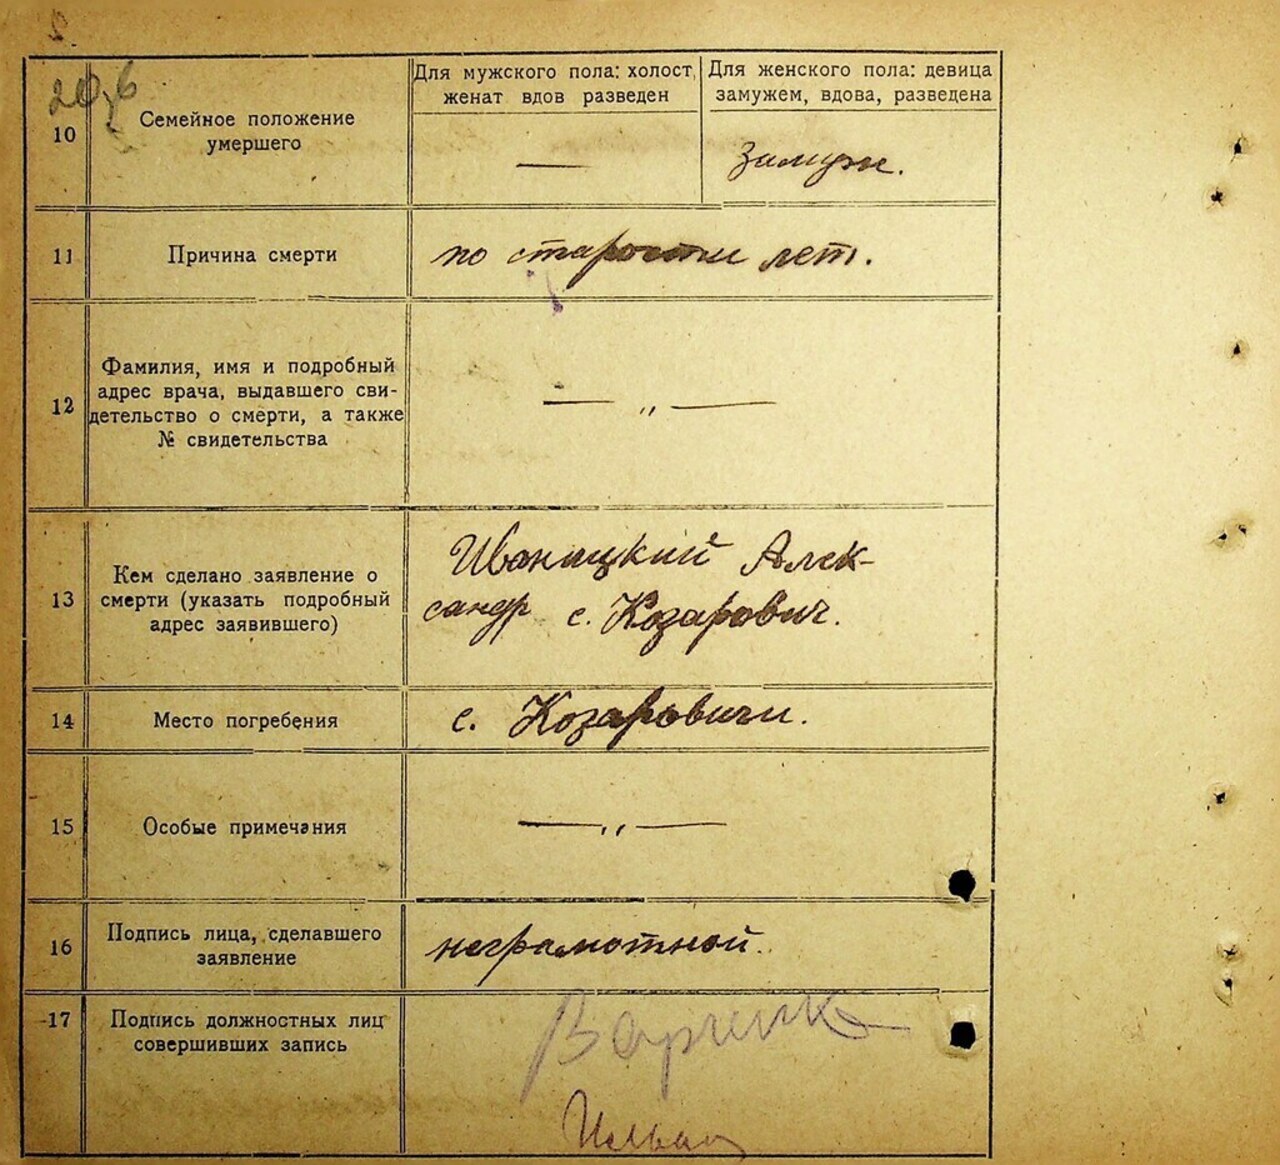 10
Семейное положение
умершего
Для мужского пола: холост,
женат вдов разведен
—
Для женского пола: девица
замужем, вдова, разведена
Замужн.
11
Причина смерти
по старости лет.
12
Фамилия, имя и подробный
адрес врача, выдавшего сви-
детельство о смерти, а также
№ свидетельства
— „ —
13
Кем сделано заявление о
смерти (указать подробный
адрес заявившего)
Иваницкий Алек-
сандр с. Козарович.
14
Место погребения
с. Козаровичи.
15
Особые примечания
— „ —
16
Подпись лица, сделавшего
заявление
неграмотной.
17
Подпись должностных лиц
совершивших запись